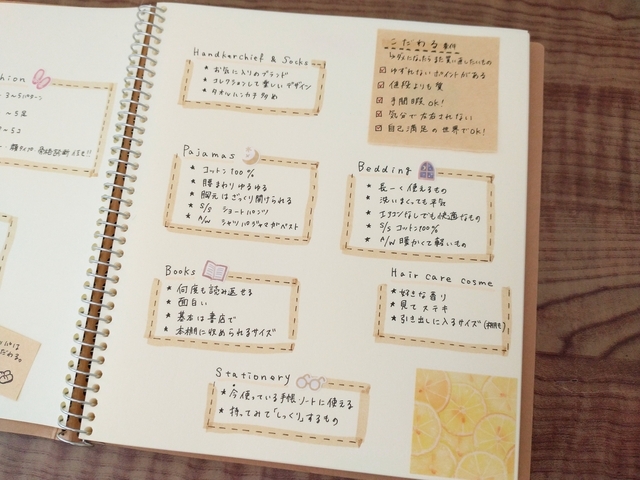 3～5パターン
～5足
～52
Handkerchief & Socks
★ お気に入りのブランド
★ コレクションして楽しいデザイン
★ タオルハンカチ多め
こだわる
☑ ゆずれないポイントがある
☑ 値段よりも質
☑ 手間暇OK!
☑ 気分で左右されない
☑ 自己満足の世界でOK!
Pajamas
★ コットン100%
★ 腰まわりゆるゆる
★ 胸元はざっくり開けられる
★ S/S ショートパンツ
★ A/W シャツパジャマがベスト
Bedding
★ 長ーく使えるもの
★ 洗いまくっても平気
★ エアコンなしでも快適なもの
★ S/S コットン100%
★ A/W 暖かくて軽いもの
Books
★ 何度も読み返せる
★ 面白い
★ 基本は書店で
★ 本棚に収められるサイズ
Hair care cosme
★ 好きな香り
★ 見てステキ
★ 引き出しに入るサイズ
Stationery
★ 今使っている手帳・ノートに使える
★ 持ってみて「しっくり」するもの